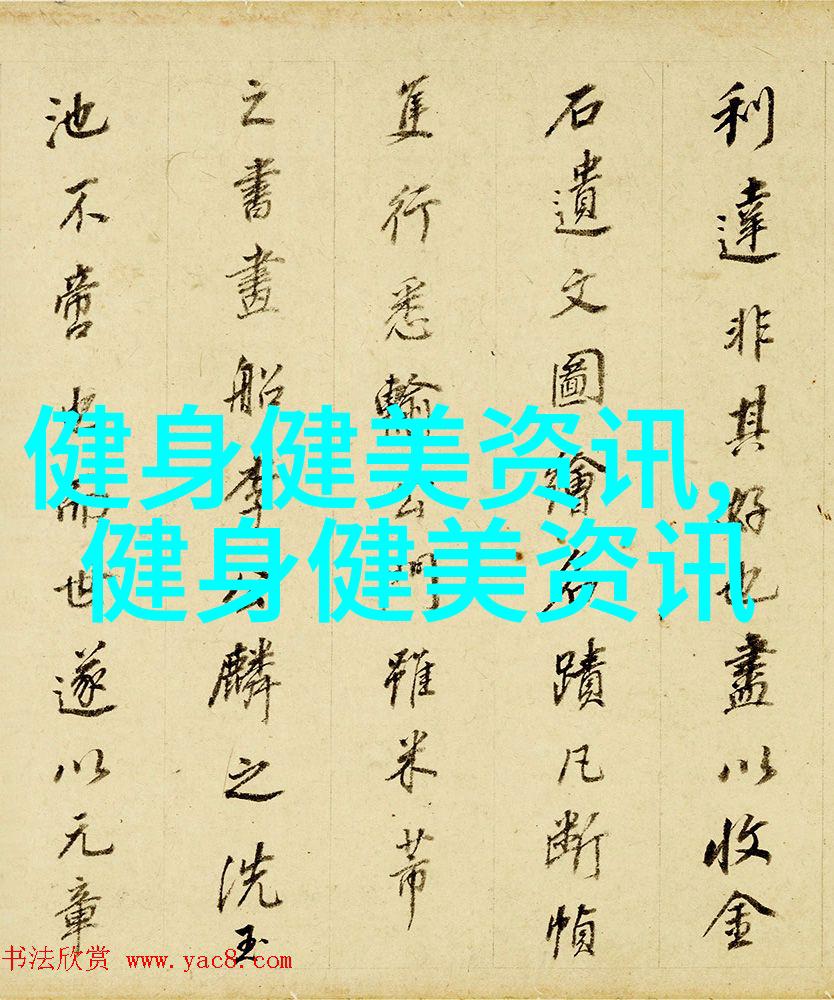 利達非其好也盡以收金
石遺文圖繪名蹟凡斷幀
隻行悉輸公門雖米芾
之書畫船李公麟之洗玉
池不啻也而世遂以元章
健身健美资讯,
健身健美资讯
书法欣赏 www.yac8.com